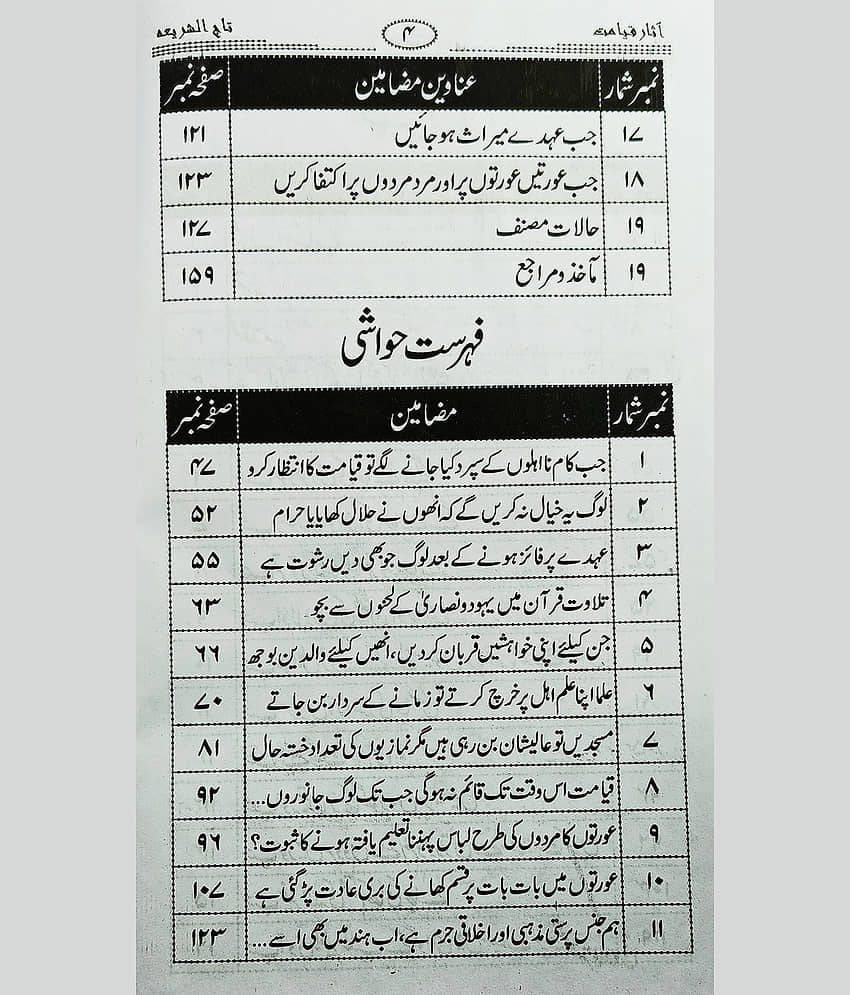 آثار قیامت ۴ تاج الشریعہ
نمبر شمار عناوین مضامین صفحہ نمبر
۱۷ جب عہدے میراث ہوجائیں ۱۲۱
۱۸ جب عورتیں عورتوں پر اور مرد مردوں پر اکتفا کریں ۱۲۳
۱۹ حالات مصنف ۱۲۷
۱۹ مآخذ و مراجع ۱۵۹
فہرست حواشی
نمبر شمار مضامین صفحہ نمبر
۱ جب کام نا اہلوں کے سپرد کیا جانے لگے تو قیامت کا انتظار کرو ۴۷
۲ لوگ یہ خیال نہ کریں گے کہ انھوں نے حلال کھایا یا حرام ۵۲
۳ عہدے پر فائز ہونے کے بعد لوگ جو بھی دیں رشوت ہے ۵۵
۴ تلاوت قرآن میں یہود و نصاریٰ کے لحنوں سے بچو ۶۳
۵ جن کیلئے اپنی خواہشیں قربان کر دیں، انھیں کیلئے والدین بوجھ ۶۶
۶ علما اپنا علم اہل پر خرچ کرتے تو زمانے کے سردار بن جاتے ۷۰
۷ مسجدیں تو عالیشان بن رہی ہیں مگر نمازیوں کی تعداد خستہ حال ۸۱
۸ قیامت اس وقت تک قائم نہ ہوگی جب تک لوگ جانوروں... ۹۲
۹ عورتوں کا مردوں کی طرح لباس پہننا تعلیم یافتہ ہونے کا ثبوت؟ ۹۶
۱۰ عورتوں میں بات بات پر قسم کھانے کی بری عادت پڑ گئی ہے ۱۰۷
۱۱ ہم جنس پرستی مذہبی اور اخلاقی جرم ہے، اب ہند میں بھی اسے... ۱۲۳